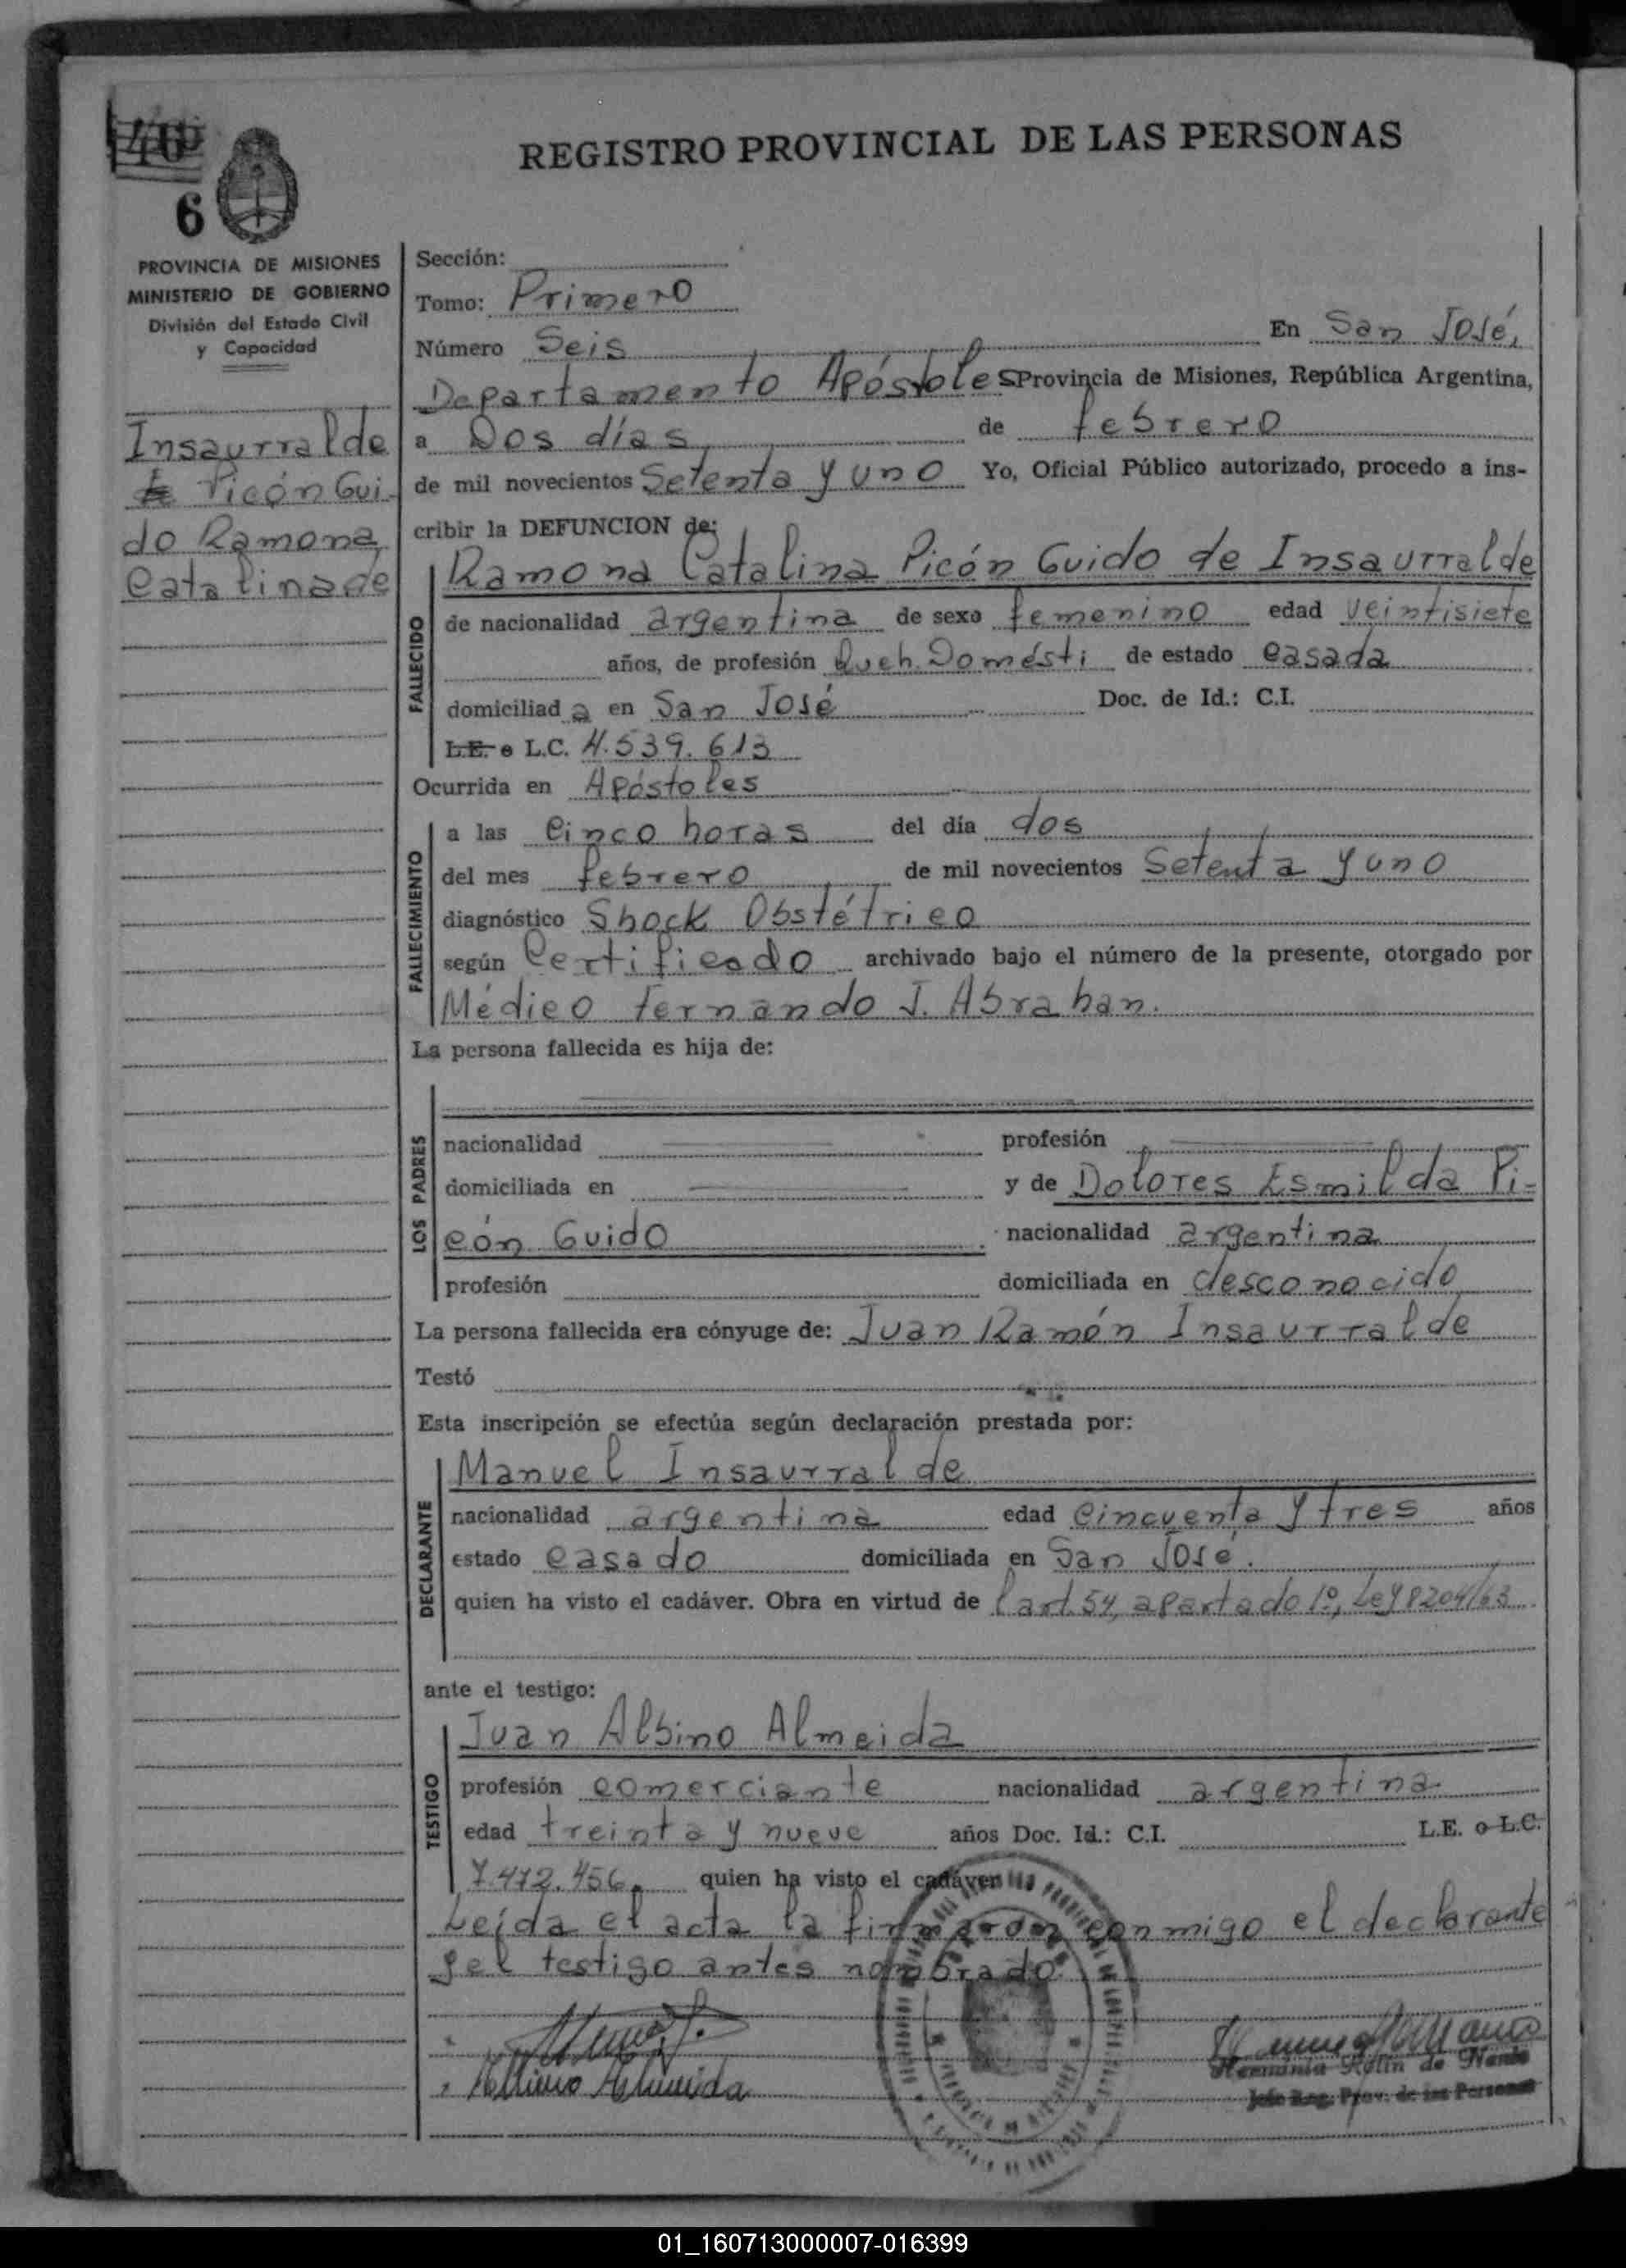 REGISTRO PROVINCIAL DE LAS PERSONAS
6
PROVINCIA DE MISIONES
MINISTERIO DE GOBIERNO
División del Estado Civil
y Capacidad
Insaurralde
Picón Gui-
do Ramona
Catalina de
Sección:
Tomo: Primero
Número Seis En San José,
Departamento Apóstoles Provincia de Misiones, República Argentina,
a Dos días de febrero
de mil novecientos Setenta y uno Yo, Oficial Público autorizado, procedo a ins-
cribir la DEFUNCION de:
FALLECIDO
Ramona Catalina Picón Guido de Insaurralde
de nacionalidad argentina de sexo femenino edad veintisiete
años, de profesión Queh. Domésti de estado casada
domiciliad a en San José Doc. de Id.: C.I.
L.E. o L.C. 4.539.613
Ocurrida en Apóstoles
FALLECIMIENTO
a las cinco horas del día dos
del mes febrero de mil novecientos Setenta y uno
diagnóstico Shock Obstétrico
según Certificado archivado bajo el número de la presente, otorgado por
Médico Fernando J. Abrahan.
La persona fallecida es hija de:
LOS PADRES
nacionalidad profesión
domiciliada en y de Dolores Esmilda Pi-
cón Guido nacionalidad argentina
profesión domiciliada en desconocido
La persona fallecida era cónyuge de: Juan Ramón Insaurralde
Testó
Esta inscripción se efectúa según declaración prestada por:
DECLARANTE
Manuel Insaurralde
nacionalidad argentina edad cincuenta y tres años
estado casado domiciliada en San José.
quien ha visto el cadáver. Obra en virtud de l art. 54, apartado 1º, Ley 8204/63
ante el testigo:
TESTIGO
Juan Albino Almeida
profesión comerciante nacionalidad argentina
edad treinta y nueve años Doc. Id.: C.I. L.E. o L.C.
7.472.456. quien ha visto el cadáver
Leída el acta la firmaron conmigo el declarante
y el testigo antes nombrado
Almeida
Herminia Rolin de
Jefe Reg. Prov. de las Personas
01_160713000007-016399